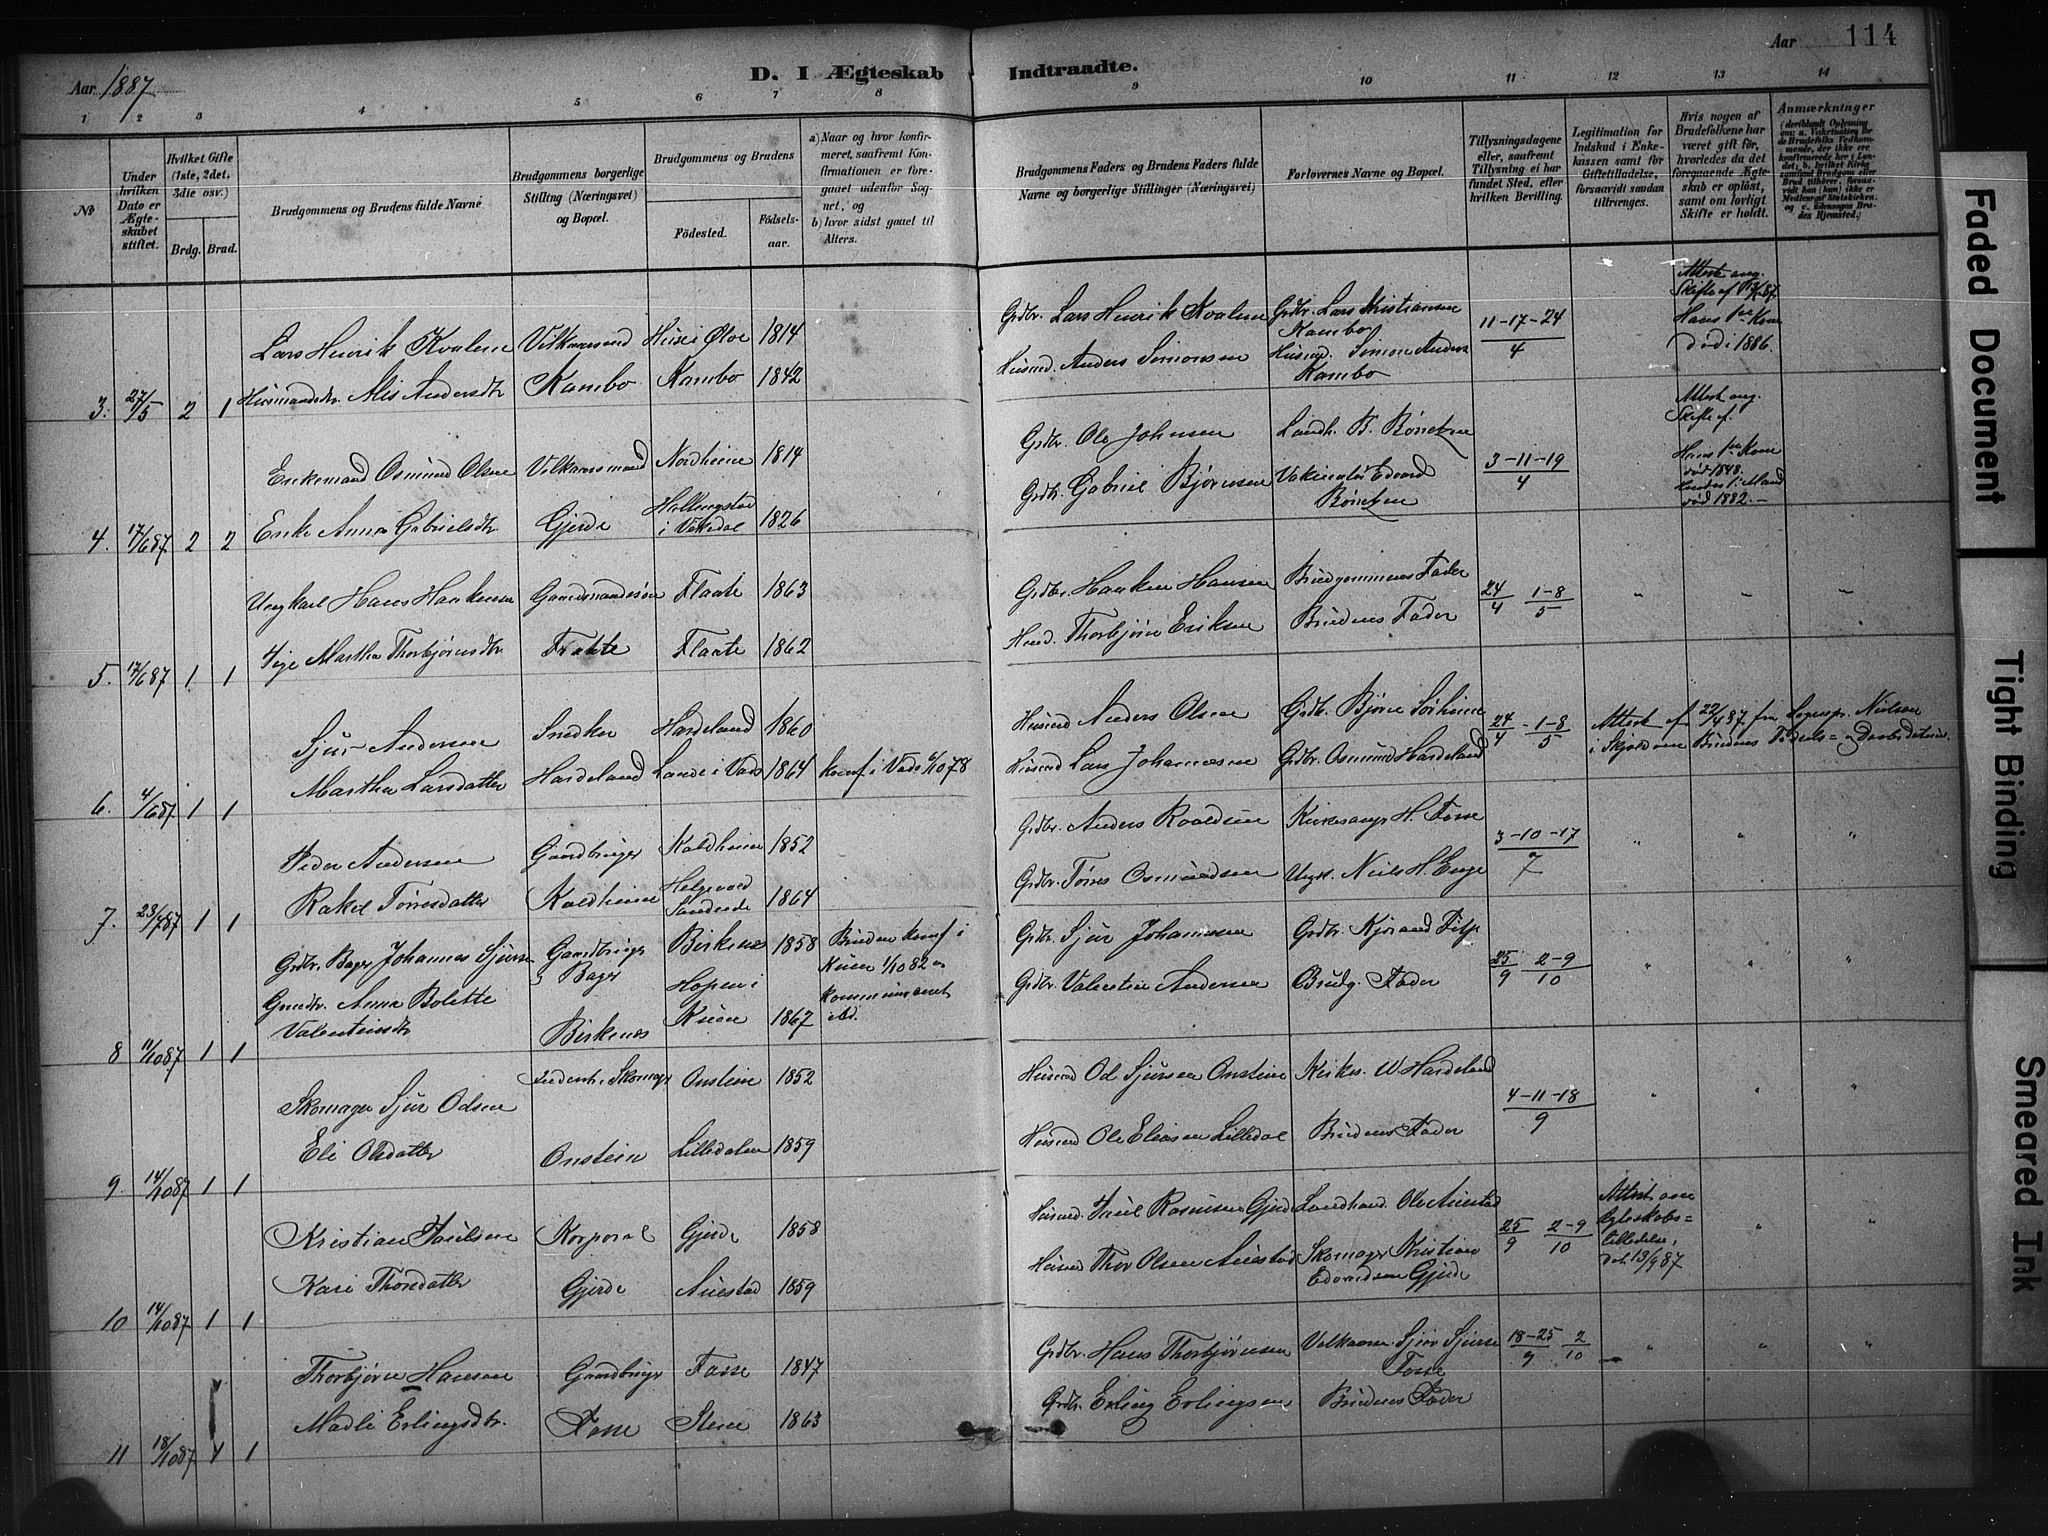 Aar 1887
D. I Ægteskab Indtraadte.
Aar 114
1 2 3 4 5 6 7 8 9 10 11 12 13 14
№
Under hvilken Dato er Ægteskabet stiftet.
Hvilket Gifte (1ste, 2det, 3die osv.)
Brdg. Brud.
Brudgommens og Brudens fulde Navne
Brudgommens borgerlige Stilling (Næringsvei) og Bopæl.
Brudgommens og Brudens
Fødested.
Fødselsaar.
a) Naar og hvor konfirmeret, saafremt Konfirmationen er foregaaet udenfor Sognet, og
b) hvor sidst gaaet til Alters.
Brudgommens Faders og Brudens Faders fulde Navne og borgerlige Stillinger (Næringsvei)
Forlovernes Navne og Bopæl.
Tillysningsdagene eller, saafremt Tillysning ei har fundet Sted, efter hvilken Bevilling.
Legitimation for Indskud i Enkekassen samt for Giftetilladelse, forsaavidt saadan tiltrænges.
Hvis nogen af Brudefolkene har været gift før, hvorledes da det foregaaende Ægteskab er opløst, samt om lovligt Skifte er holdt.
Anmærkninger
3. 27/5 2 1
Lars Henrik Kvalene
Husmandsdtr. Alis Andersdtr
Vilkaarsmand
Kambo
Huse i Ølve 1814
Kambo 1842
Grdbr. Lars Henrik Kvalene
Husmd. Anders Simonsen
Grdbr. Lars Kristiansen Kambo
Husmd. Simon Anders Kambo
11-17-24
4
Attest ang. Skifte af
Hans 1ste Kone
død i 1886.
4. 17/6 87 2 2
Enkemand Osmund Olsen
Enke Anna Gabrielsdtr
Vilkaarsmand
Gjerde
Nordheim 1814
i Vikedal 1826
Grdbr. Ole Johnsen
Grdbr. Gabriel Bjørnsen
Landh. B. Böretzen
Vakcinatör Edvard Böretzen
3-11-19
4
Attest ang.
Skifte af.
Hans 1ste Kone
død 1848.
Hendes 1. Mand
død 1882.-
5. 17/6 87 1. 1
Ungkarl Hans Haakensen
Pige Martha Thorbjørnsdtr
Gaardmandssøn
Flaate
Flaate 1863
Flaate 1862
Grdbr. Haaken Hansen
Husmd. Thorbjørn Eriksen
Brudgommens Fader
Brudens Fader
24/4 1-8/5
" " "
6. 4/6 87 1 1
Sjur Andersen
Martha Larsdatter
Snedker
Hardeland
Hardeland 1860
Lande i Vads 1864
konf. i Vads 6/10 78
Husmd Anders Olsen
Husmd Lars Johannesen
Grdbr. Bjørn Sørheim
Grdbr. Osmund Hardeland
24/4 - 1-8/5
Attest af 22/4 87 fra Sognepr. Nielsen
i Skjold om Brudens Fødsels= og Daabsdatum.
7. 23/7 87 1 1
Peder Andersen
Rakel Tørresdatter
Gaardbruger
Kaldheim
Kaldheim 1852
Helgevold
Sandeide 1864
Grdbr. Anders Roaldsen
Grdbr. Tørres Osmundsen
Kirkesangr H. Fosse
Ungk. Niels H. Enge
3-10-17
7
" " "
8 11/10 87 1 1
Grdbr. Bager Johannes Sjursen
Gmdtr. Anna Bolette
Valentinsdtr
Gaardbruger
& Bager
Birkenes
Birkenes 1858
Hopen i
1867
Bruden konf. i
1/10 82 og
kommuniceret
Grdbr. Sjur Johannesen
Grdbr. Valentin Andersen
Grdbr. Kjørand
Brudg. Fader
25/9 2-9/10
" " "
9. 14/10 87 1 1
Skomager Sjur Odsen
Eli Olsdatter
Inderst, Skomager
Onstein
Onstein 1852
Lilledalen 1859
Husmd Od Sjursen Onstein
Husmd Ole Eliasen Lilledal
Kirkes. W Hardeland
Brudens Fader
4-11-18
9
" " "
10 14/10 87 1 1
Kristian Paulsen
Kari Thorsdatter
Korporal
Gjerde
Gjerde 1858
Auestad 1859
Husmd. Paul Rasmusen Gjerde
Husmd Thor Olsen Auestad
Landhand. Ole Auestad
Skomager Kristian
Edvardsen Gjerde
25/9 2-9/10
Attest om
Egteskabs=
tilladelse,
dat. 13/9 87
" "
11 18/10 87 1 1
Thorbjørn Hansen
Madli Erlingsdtr.
Gaardbruger
Fosse
Fosse 1847
Stene 1863
Grdbr. Hans Thorbjørnsen
Grdbr. Erling Erlingsen
Vilkaarsm. Sjur Sjursen
Fosse
Brudens Fader
18-25/9 2/10
" " "
Faded Document
Tight Binding
Smeared Ink